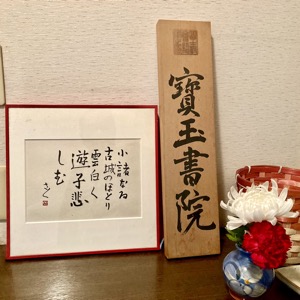 小諸なる
古城のほとり
雲白く
遊子悲
しむ
寶玉書院